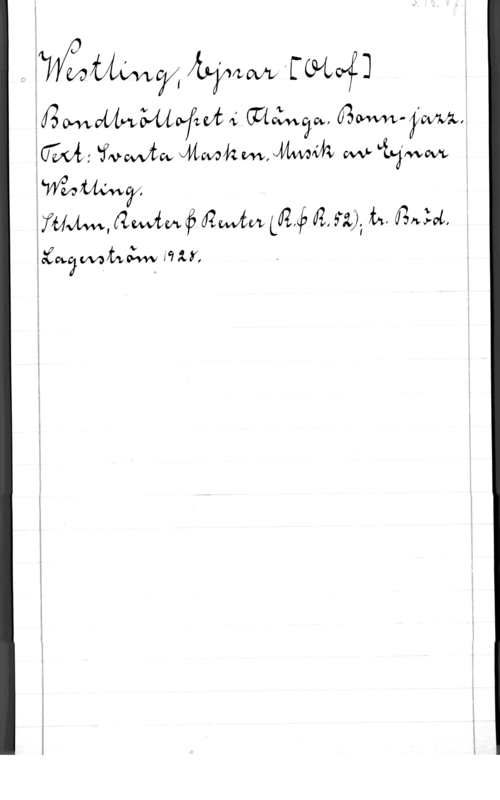 Westling, Ejnar [Olof]
Bondbröllopet i Flänga. Bonn-jazz.
Text: Svarta Masken. Musik av Ejnar
Westling.
Sthlm, Reuter & Reuter (R.& R. 52); tr. Bröd.
Lagerström 1928.